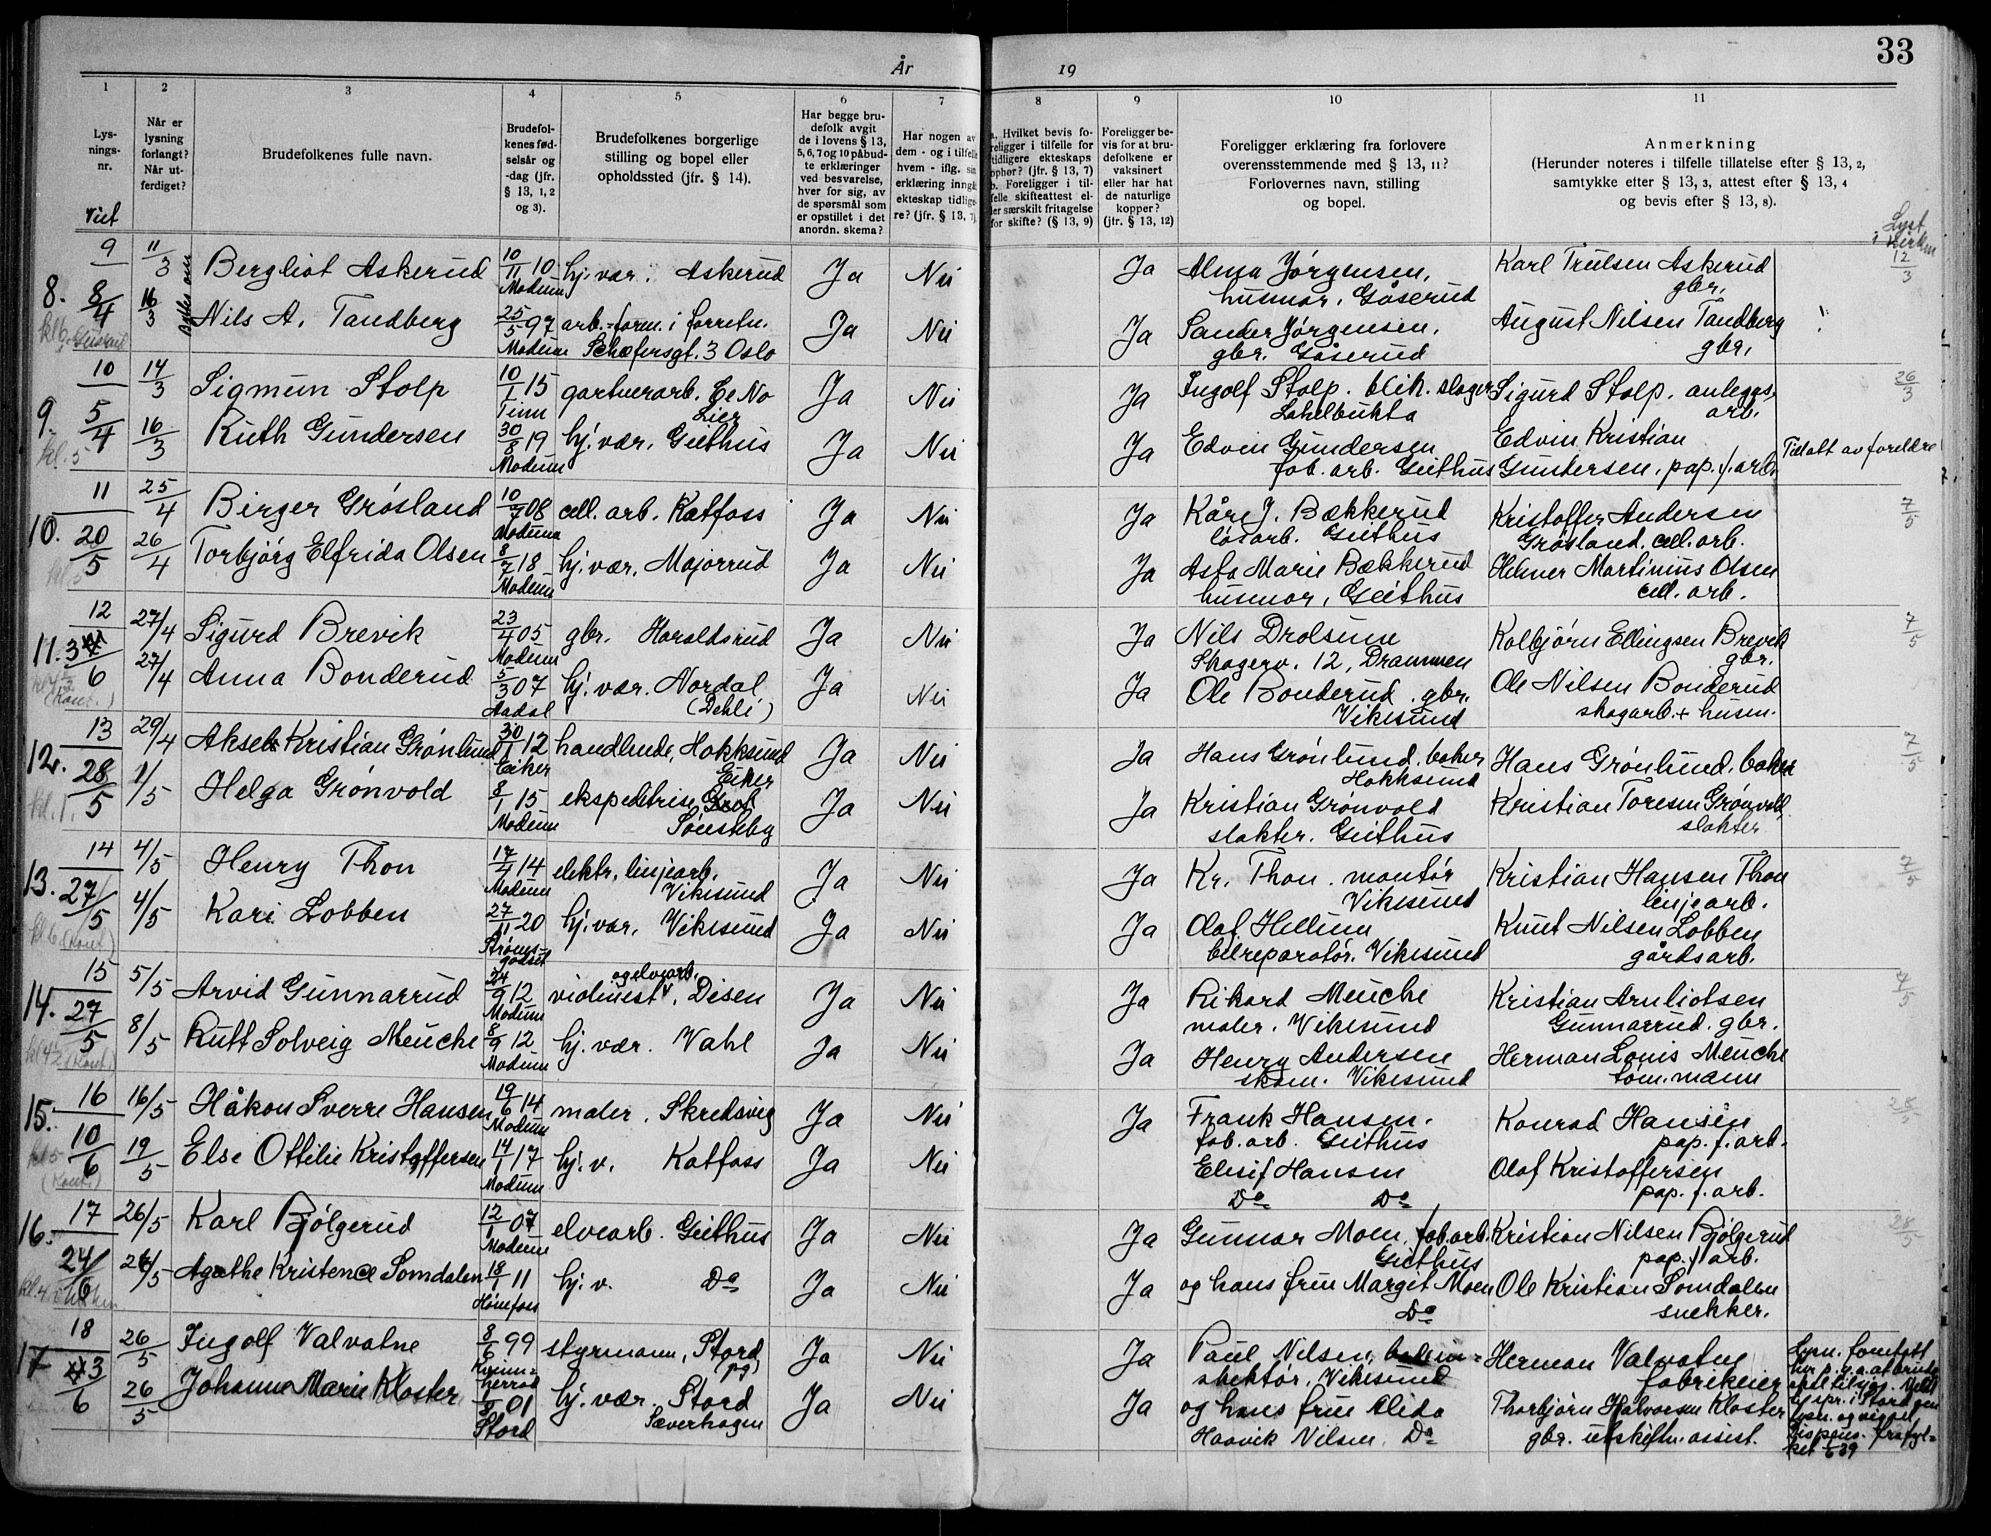 33
År
19
1
2
3
4
5
6
7
8
9
10
11
Lys-
nings-
nr.
Når er
lysning
forlangt?
Når ut-
ferdiget?
Brudefolkenes fulle navn.
Brudefol-
kenes fød-
selsår og
-dag (jfr.
§ 13, 1, 2
og 3).
Brudefolkenes borgerlige
stilling og bopel eller
opholdssted (jfr. § 14).
Har begge bru-
defolk avgit
de i lovens § 13,
5, 6, 7 og 10 påbud-
te erklæringer
ved besvarelse,
hver for sig, av
de spørsmål som
er opstillet i det
anordn. skema?
Har nogen av
dem - og i tilfelle
hvem - iflg. sin
erklæring inngåt
ekteskap tidlige-
re? (jfr. § 13, 7).
a. Hvilket bevis fo-
religger i tilfelle for
tidligere ekteskaps
ophør? (jfr. § 13, 7)
b. Foreligger i til-
felle skifteattest el-
ler særskilt fritagelse
for skifte? (§ 13, 9)
Foreligger be-
vis for at bru-
defolkene er
vaksinert
eller har hat
de naturlige
kopper?
(jfr. § 13, 12)
Foreligger erklæring fra forlovere
overensstemmende med § 13, 11?
Forlovernes navn, stilling
og bopel.
Anmerkning
(Herunder noteres i tilfelle tillatelse efter § 13, 2,
samtykke efter § 13, 3, attest efter § 13, 4
og bevis efter § 13, 8).
Viet
Lyst
i kirken
9 11/3 Bergliot Askerud 10/11 10 hj. vær. Askerud Ja Nei Ja Alma Jørgensen, Karl Trulsen Askerud 12/3
Modum husmor, Gåserud gbr.
8. 8/4 16/3 Nils A. Tandberg 25/5 97 arb.-form. i forretn. Ja Nei Ja Sander Jørgensen, August Nilsen Tandberg
Modum Schæfersgt. 3 Oslo gbr. Gåserud gbr.
10 14/3 Sigmun Stolp 10/1 15 gartnerarb. Ja Nei Ja Ingolf Stolp. blik. slager Sigurd Stolp. anleggs- 26/3
Tinn Lier Lahelbukta arb.
9. 5/4 16/3 Ruth Gundersen 30/8 19 hj. vær. Geithus Ja Nei Ja Edvin Gundersen Edvin Kristian Tillatt av foreldre
kl. 5 Modum fab. arb. Geithus Gundersen. pap. f. arb.
11 25/4 Birger Grøsland 10/7 08 cell. arb. Katfoss Ja Nei Ja Kåre J. Bækkerud Kristoffer Andersen 7/5
Modum løsarb. Geithus Grøsland. cell. arb.
10. 20/5 26/4 Torbjörg Elfrida Olsen 8/7 18 hj. vær. Majorrud Ja Nei Ja Asta Marie Bækkerud Helmer Martinius Olsen
Modum husmor, Geithus cell. arb.
12 27/4 Sigurd Brevik 23/4 05 gbr. Haraldsrud Ja Nei Ja Nils Drolsum Kolbjørn Ellingsen Brevik 7/5
Modum Skogerv. 12, Drammen gbr.
11. 3/6 27/4 Anna Bonderud 5/3 07 hj. vær. Nordal Ja Nei Ja Ole Bonderud. gbr. Ole Nilsen Bonderud
Aadal (Dehli) Vikesund skogarb. + husm.
13 29/4 Aksel Kristian Grønlund 30/1 12 handlende, Hokksund Ja Nei Ja Hans Grønlund, baker Hans Grønlund, baker 7/5
Eiker Eiker Hokksund
12. 28/5 1/5 Helga Grønvold 8/1 15 ekspeditrise Ja Nei Ja Kristian Grønvold Kristian Toresen Grønvold
kl. 1. Modum Sønsteby slakter. Geithus slakter
14 4/5 Henry Thon 17/4 14 elektr. linjearb. Ja Nei Ja Kr. Thon. montør Kristian Hansen Thon 7/5
Modum Vikesund Vikesund linjearb.
13. 27/5 4/5 Kari Lobben 27/11 20 hj. vær. Vikesund Ja Nei Ja Olaf Hellum Knut Nilsen Lobben
kl. 6 (Kont) Strøms- bilreparatør. Vikesund gårdsarb.
godset
15 5/5 Arvid Gunnarrud 24/9 12 violinist og elvearb. Disen Ja Nei Ja Rikard Meuche Kristian Arnliotsen 7/5
Modum maler. Vikesund Gunnarrud. gbr.
14. 27/5 8/5 Rutt Solveig Meuche 8/9 12 hj. vær. Vahl Ja Nei Ja Henry Andersen Herman Louis Meuche
(Kont) Modum skom. Vikesund tøm.mann
16 16/5 Håkon Sverre Hansen 19/6 14 maler. Skredsvig Ja Nei Ja Frank Hansen. Konrad Hansen 28/5
Modum fab. arb. Geithus pap. f. arb.
15. 10/6 19/5 Else Ottilie Kristoffersen 14/1 17 hj. v. Katfoss Ja Nei Elesif Hansen Olaf Kristoffersen
(Kont.) Modum Do Do pap. f. arb.
17 26/5 Karl Bjølgerud 12/1 07 elvearb. Geithus Ja Nei Ja Gunnar Moen, fab. arb. Kristian Nilsen Bjølgerud 28/5
Modum Geithus pap. f. arb.
16. 24/6 26/5 Agathe Kristence Somdalen 18/1 11 hj. v. Do Ja Nei Ja og hans frue Margit Moen Ole Kristian Somdalen
Hønefoss Do snekker.
18 26/5 Ingolf Valvatne 8/6 99 styrmann, Stord Ja Nei Ja Paul Nilsen, Herman Valvatne Lysn. foretatt
Kvinn- (pg) Vikesund fabrikeier
herrad
17 3/6 26/5 Johanne Marie Kloster 8/9 01 hj. vær. Stord Ja Nei Ja og hans frue Alida Thorbjørn Halvorsen Kloster
Stord Sæverhagen Haavik Nilsen. Do gbr. utskiftn. assist.